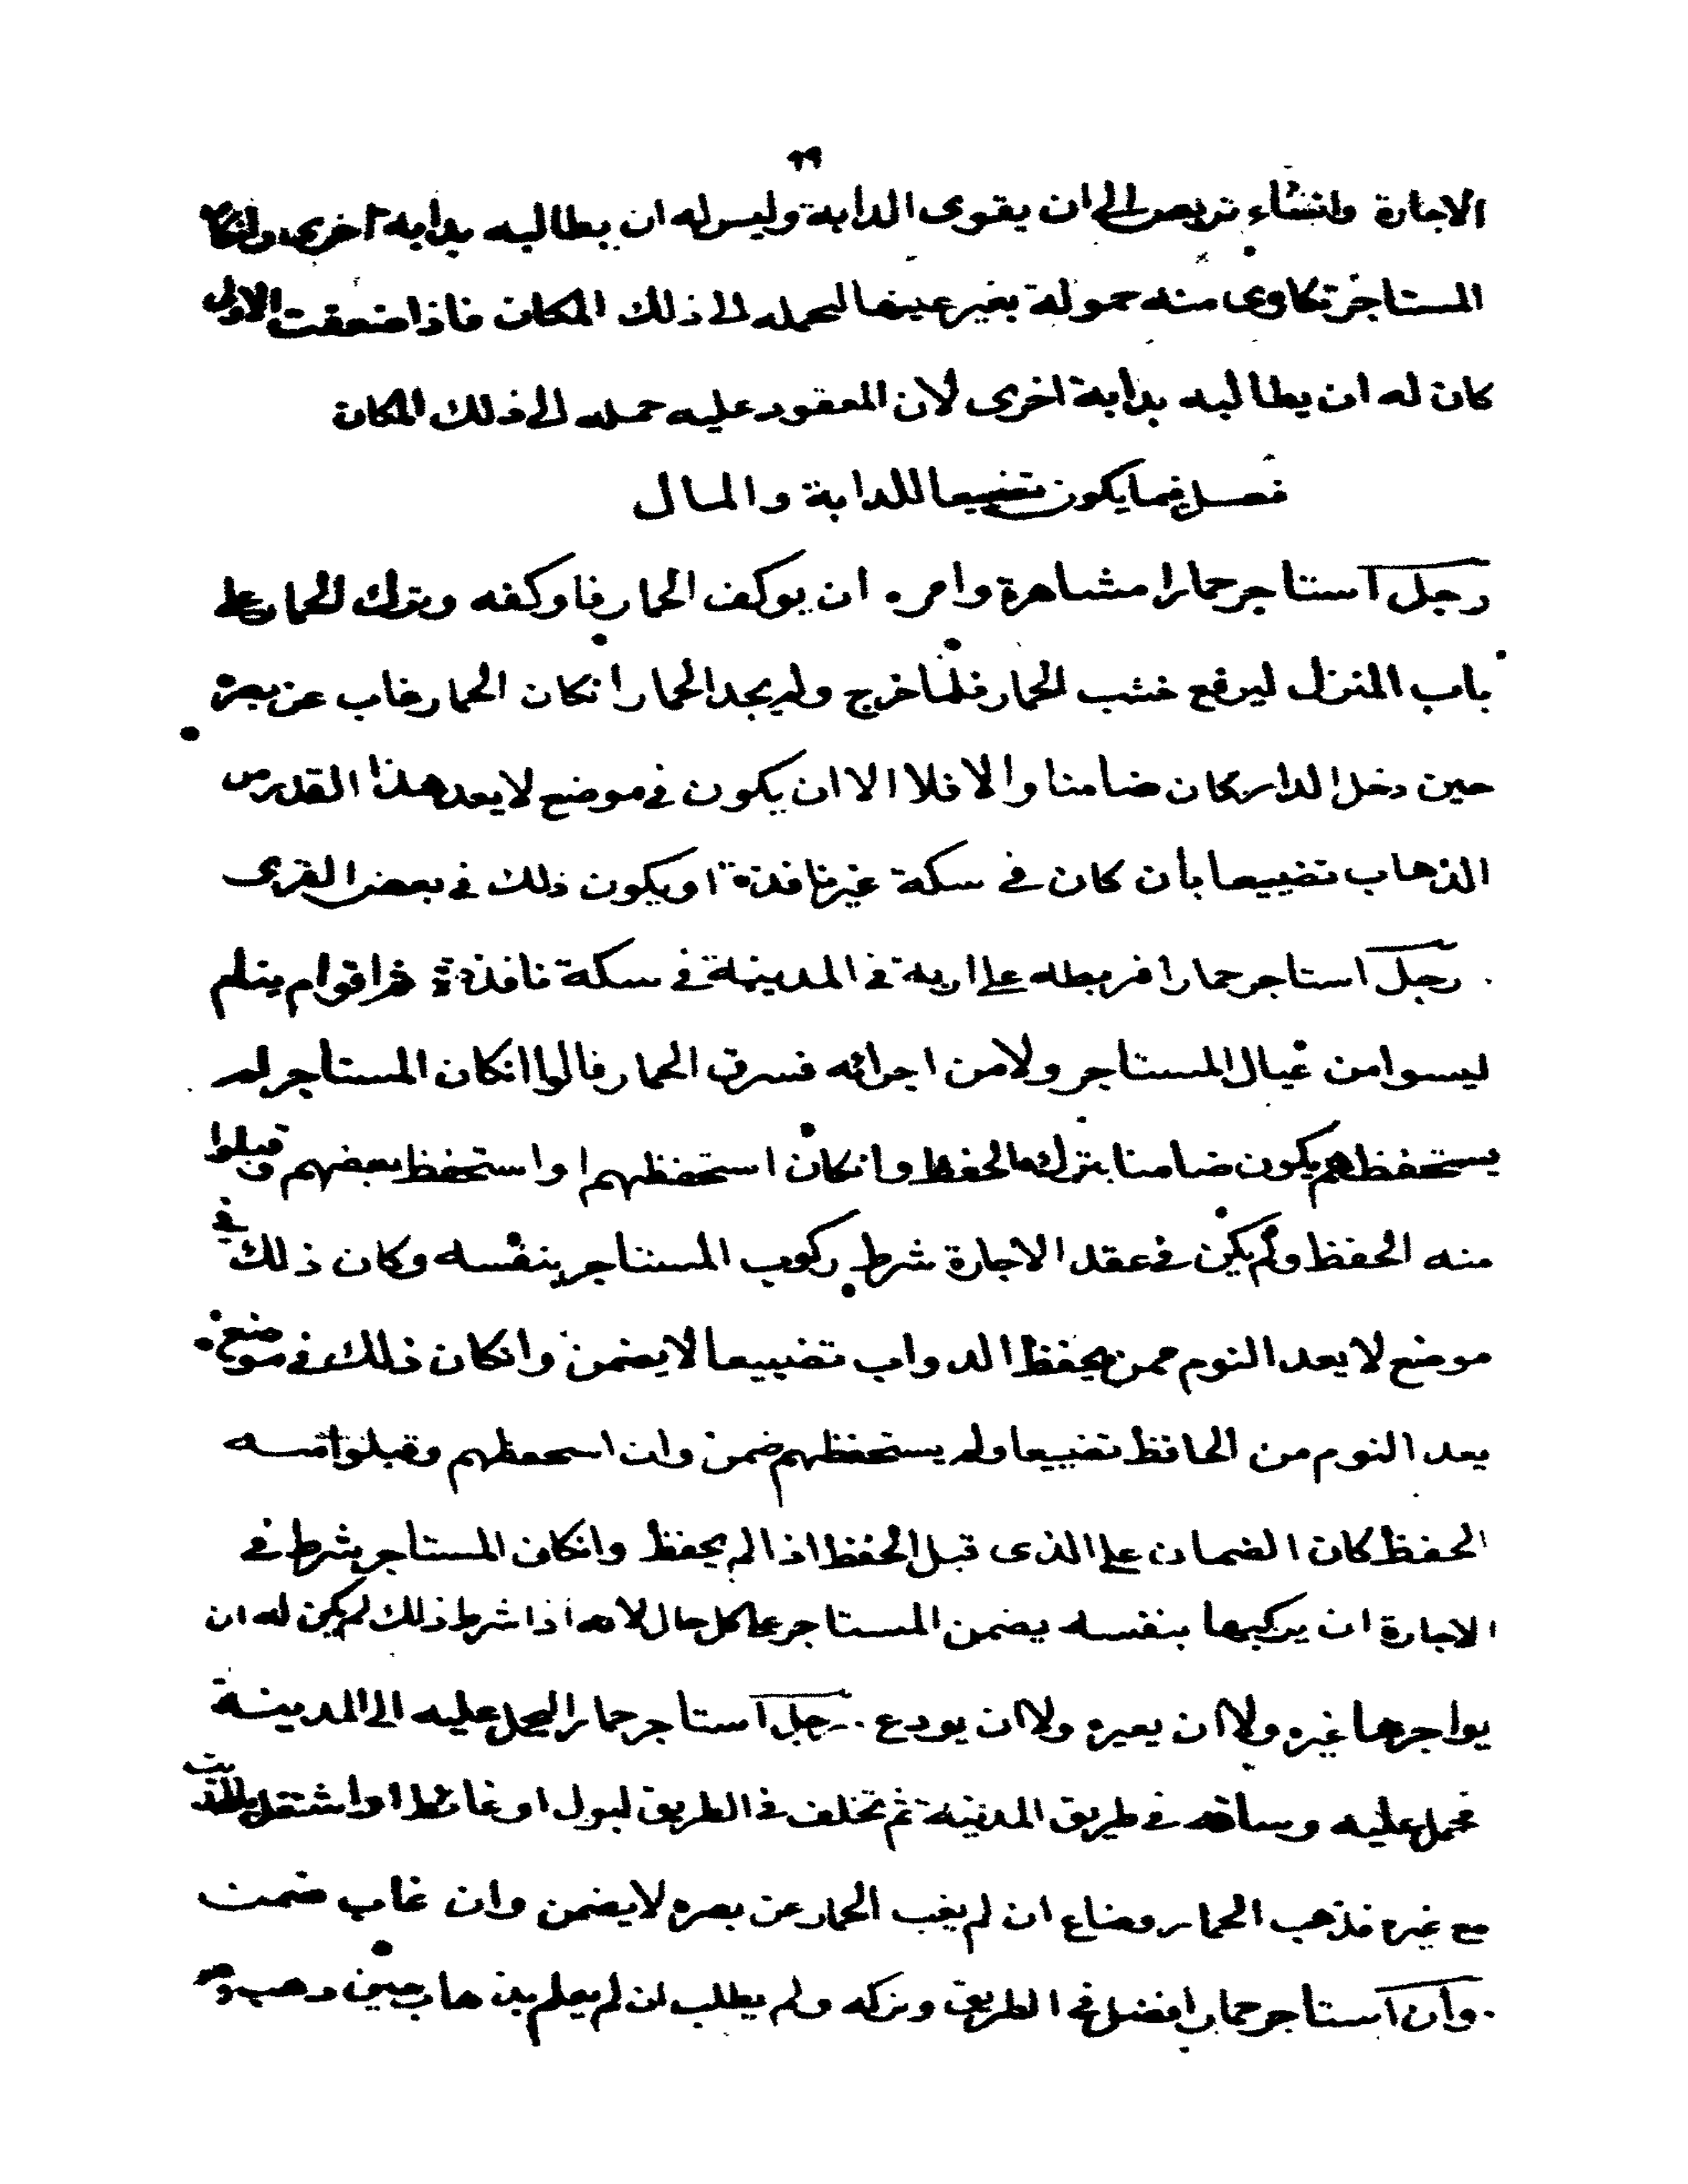 ٢٩
الاجارة وانشاء تربص الى ان يقوى الدابة وليس له ان يطالبه بدابة اخرى وانكا
المستاجر تكاوى منه حمولة بغير عينها لحمله الى ذلك المكان فاذا ضعفت الاولى
كان له ان يطالبه بدابة اخرى لان المعقود عليه حمله الى ذلك المكان
فصل فيما يكون تضييعا للدابة والمال
رجل استاجر حمارا مشاهرة وامره ان يوكف الحمار فاوكفه وترك الحمار على
باب المنزل ليرفع خشب الحمار فلما خرج ولم يجد الحمار انكان الحمار غاب عن بصره
حين دخل الدار كان ضامنا والا فلا الا ان يكون في موضع لا يعد هذا القدر من
الذهاب تضييعا بأن كان في سكة غير نافذة او يكون ذلك في بعض القرى
رجل استاجر حمارا فربطه على اريه في المدينة في سكة نافذة اقوام ينام
ليسوا من عيال المستاجر ولا من اجرائه فسرق الحمار قالوا انكان المستاجر لم
يستحفظهم يكون ضامنا بترك الحفظ وانكان استحفظهم او استحفظ بعضهم وقبلوا
منه الحفظ ولم يكن في عقد الاجارة شرط ركوب المستاجر بنفسه وكان ذلك في
موضع لا يعد النوم ممن يحفظ الدواب تضييعا لا يضمن وانكان ذلك في موضع
يعد النوم من الحافظ تضييعا ولم يستحفظهم ضمن وان استحفظهم وقبلوا منه
الحفظ كان الضمان على الذى قبل الحفظ اذا لم يحفظ وانكان المستاجر شرط في
الاجارة ان يركبها بنفسه يضمن المستاجر على كل حال لانه اذا شرط ذلك لم يكن له ان
يواجرها غيره ولا ان يعيره ولا ان يودع رجل استاجر حمارا ليحمل عليه الى المدينة
فحمل عليه وساقه في طريق المدينة ثم تخلف في الطريق لبول او غائط او اشتغل بالحديث
مع غيره فذهب الحمار وضاع ان لم يغب الحمار عن بصره لا يضمن وان غاب ضمن
وان استاجر حمارا فضل في الطريق وتركه ولم يطلب ان لم يعلم بذهابه حين ذهب وهو